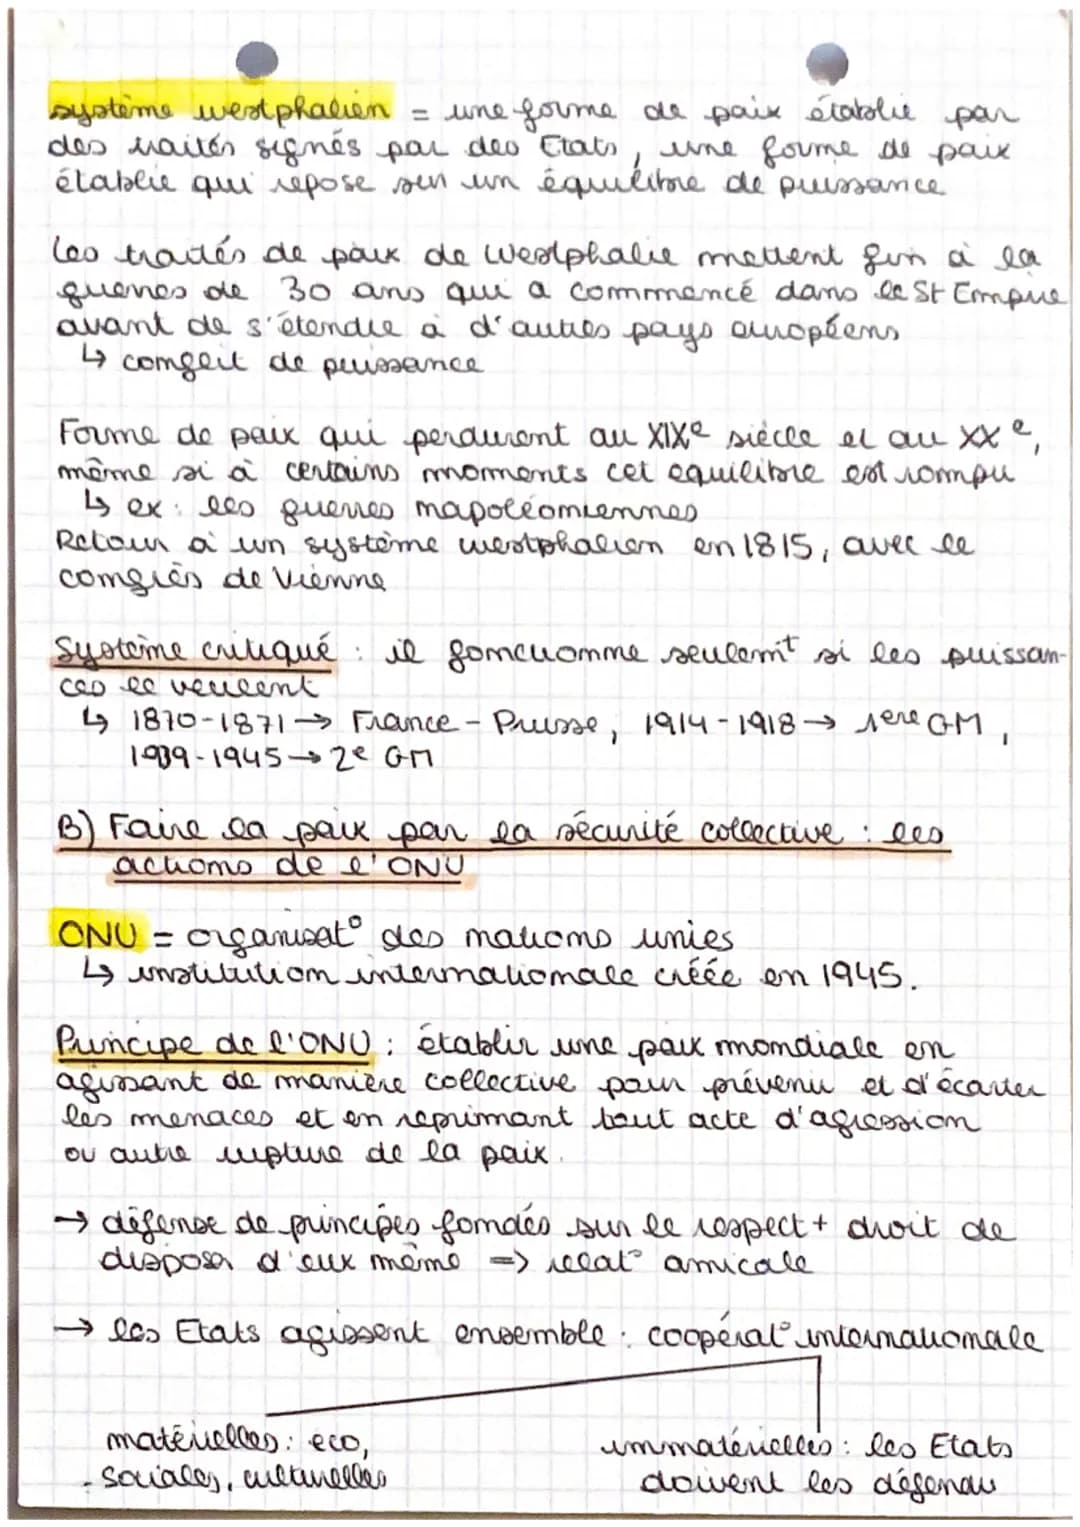 système westphalien = une forme de paix établie par
des traités signés par des Etats, une forme de paix
établie qui repose sur un équilibre de puissance
les traités de paix de Westphalie mettent fin à la
guerres de 30 ans qui a commencé dans le St Empire
avant de s'étendre à d'autres pays européens
↳ conflit de puissance
Forme de paix qui perdurent au XIXe siècle et au XXe,
même si à certains moments cet equilibre est rompu
↳ ex : les guerres napoléoniennes
Retour à un système westphalien en 1815, avec le
congrès de Vienne
Système critiqué : il fonctionne seulemt si les puissan-
ces le veulent
↳ 1870-1871 → France - Prusse, 1914-1918 → 1ere GM,
1939-1945 → 2e GM
B) Faire la paix par la sécurité collective : les
actions de l'ONU
ONU = organisat° des nations unies
↳ institution internationale créée en 1945.
Principe de l'ONU : établir une paix mondiale en
agissant de manière collective pour prévenir et d'écarter
les menaces et en reprimant tout acte d'agression
ou autre rupture de la paix.
→ défense de principes fondés sur le respect + droit de
disposer d'eux même => relat° amicale
→ les Etats agissent ensemble : coopérat° internationale
matérielles : eco,
sociales, culturelles
immatérielles : les Etats
doivent les défendre